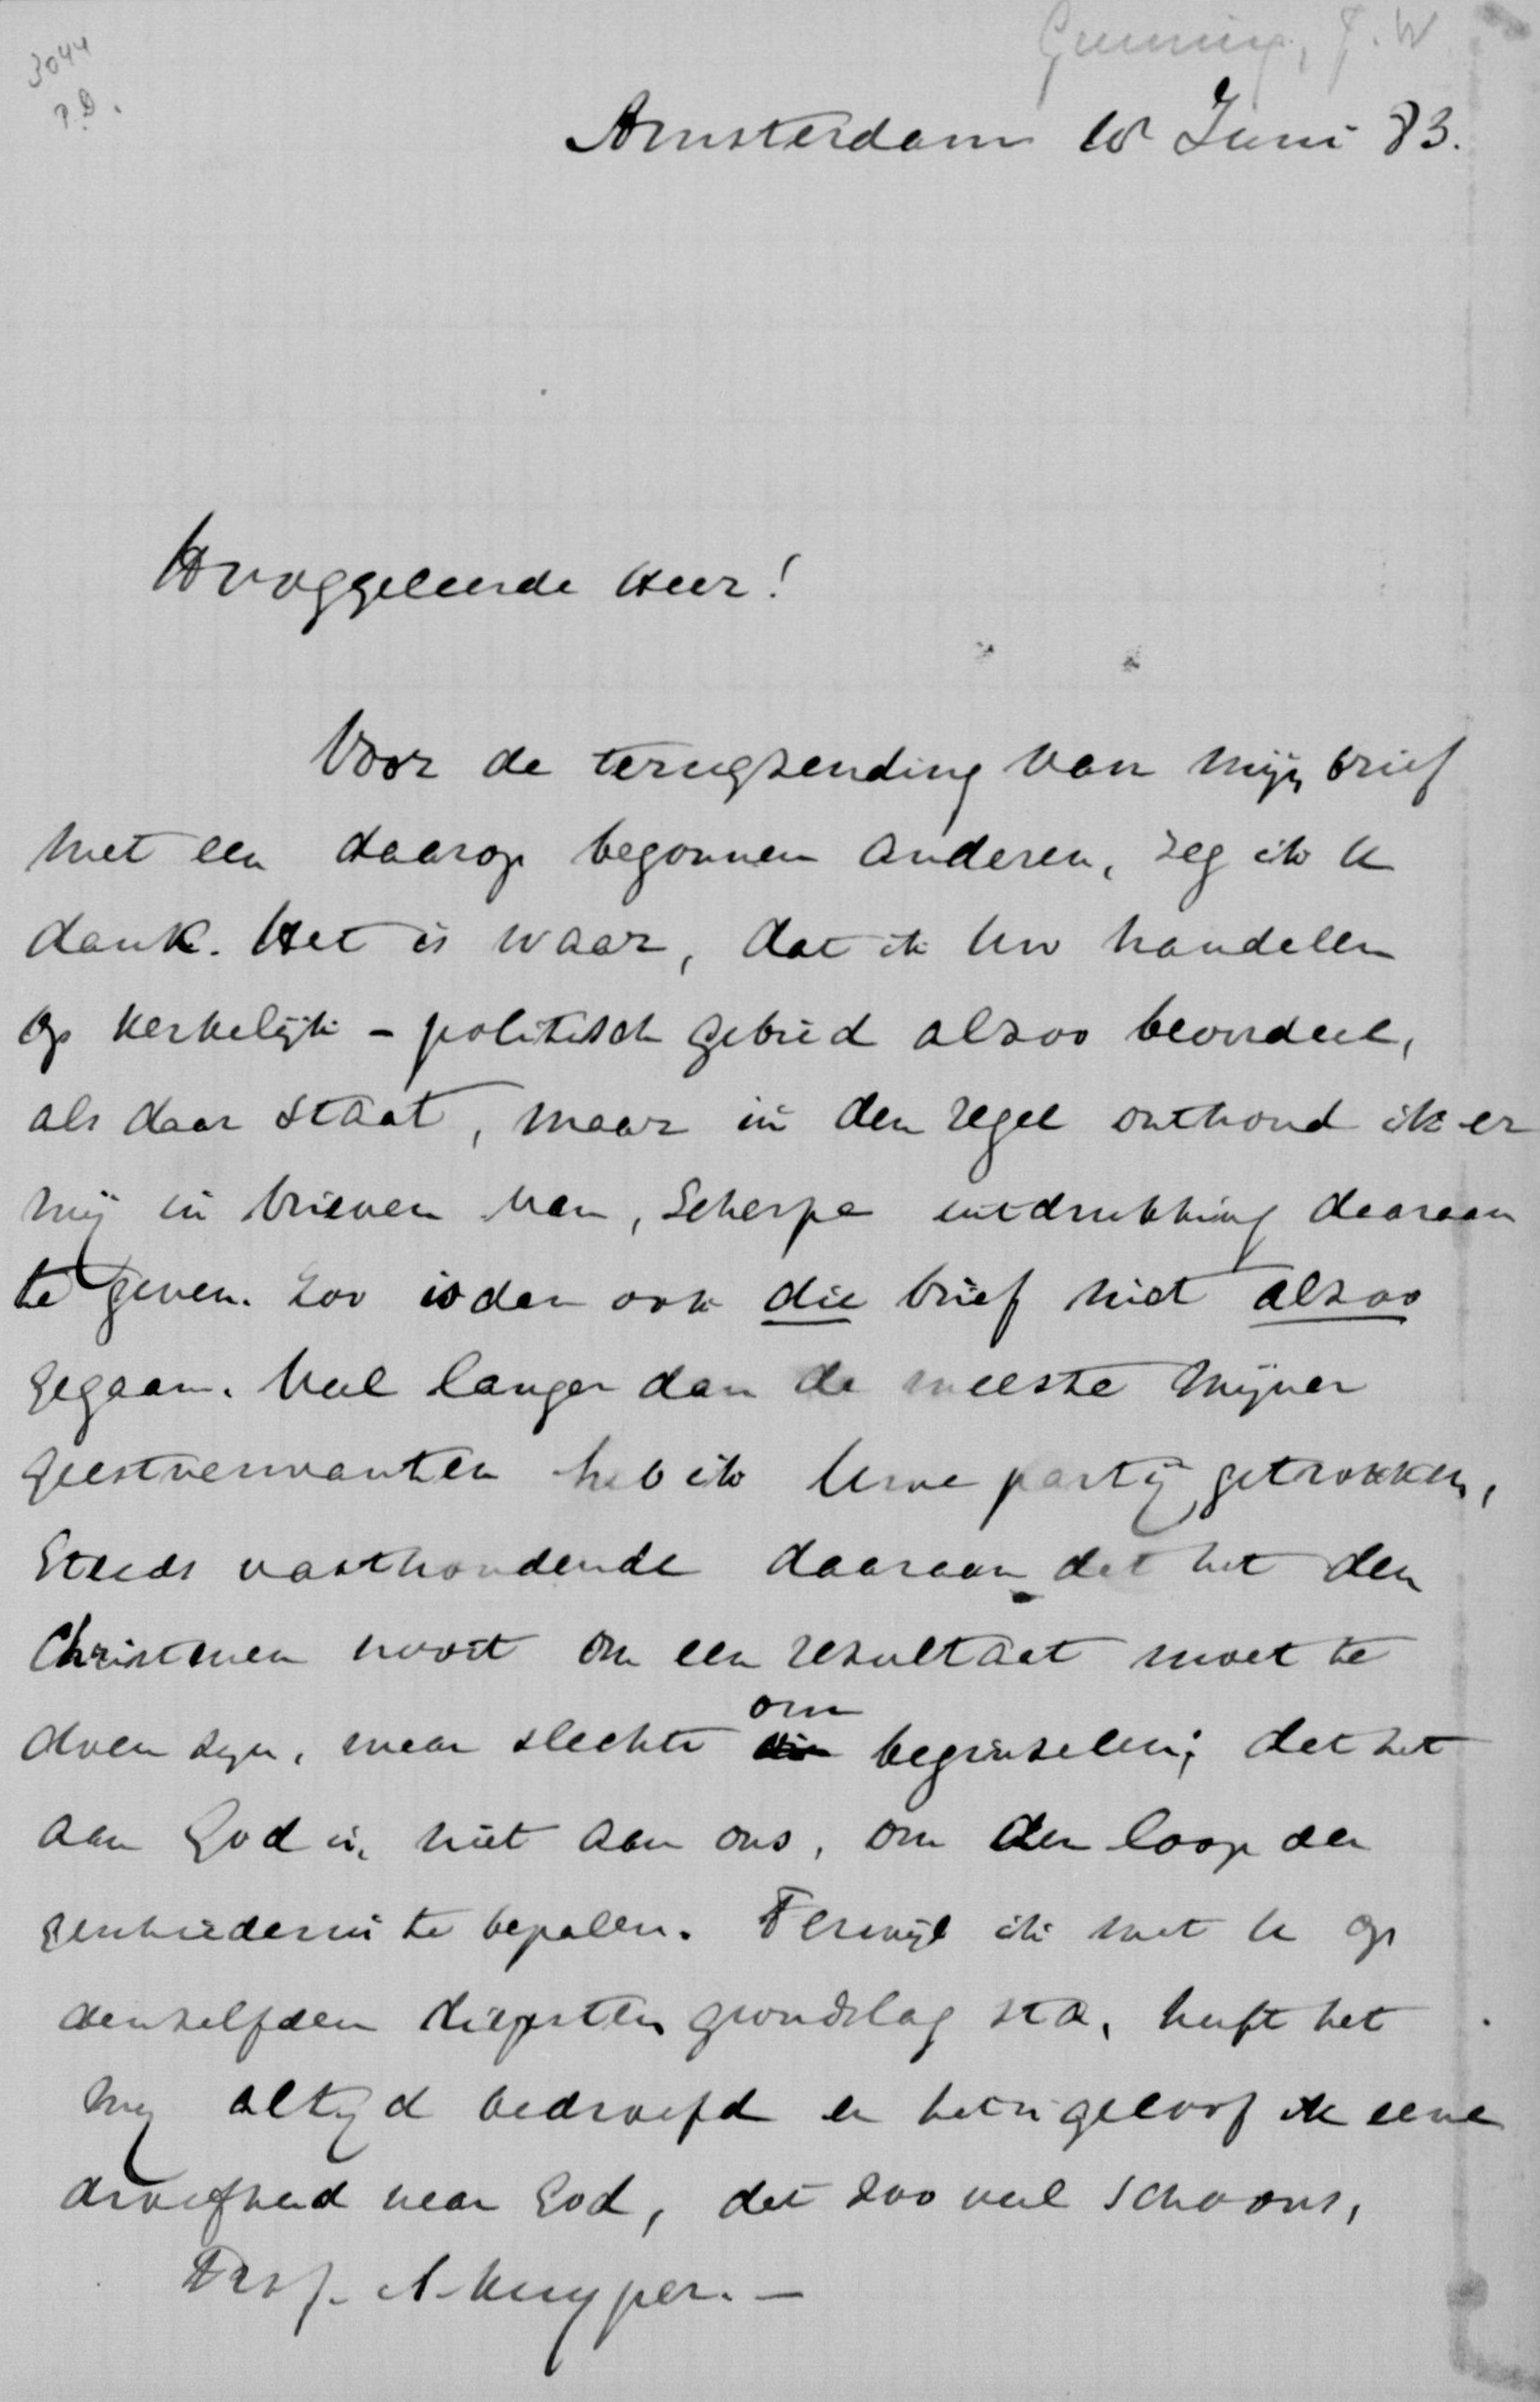 3044
P.D.
Gunning, J.W.
Amsterdam 10 Juni 83.
Hooggeleerde Heer!
Voor de terugzending van mijn brief
met een daarop begonnen anderen, zeg ik U
dank. Het is waar, dat ik Uw handelen
op kerkelijk-politisch gebied alzoo beoordeel,
als daar staat, maar in den regel onthoud ik er
mij in brieven van, scherpe uitdrukking daaraan
te geven. Zoo is dan ook die brief niet alzoo
gegaan. Veel langer dan de meeste mijner
geestverwanten heb ik Uwe partij getrokken,
steeds vasthoudende daaraan dat het den
Christenen nooit om een resultaat moet te
doen zijn, maar slechts om beginselen; dat het
aan God is, niet aan ons, om den loop der
geschiedenis te bepalen. Terwijl ik met U op
denzelfden diepsten grondslag sta, heeft het
mij altijd bedroefd en het is geloof ik eene
droefheid naar God, dat zoo veel schoons,
Prof. A. Kuyper. —